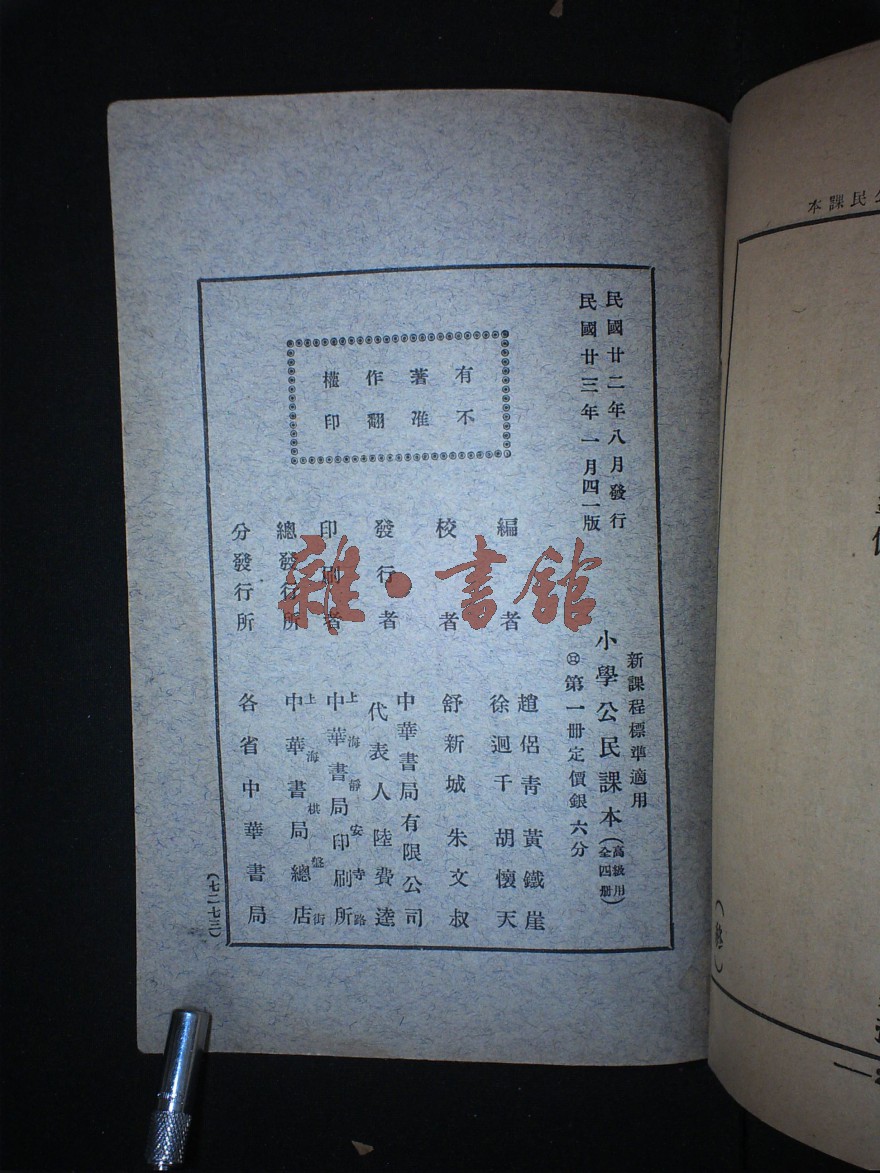 民國廿二年八月發行
民國廿三年一月四一版
新課程標準適用
小學公民課本(高級用 全四册)
第一冊定價銀六分
有著作權
不准翻印
編者
趙侶青 黃鐵崖
徐迥千 胡懷天
校者
舒新城 朱文叔
發行者
中華書局有限公司
代表人陸費逵
印刷者
上海靜安寺路
中華書局印刷所
總發行所
上海棋盤街
中華書局總店
分發行所
各省中華書局
(七二七三)
雜·書館
本課民公
(終)